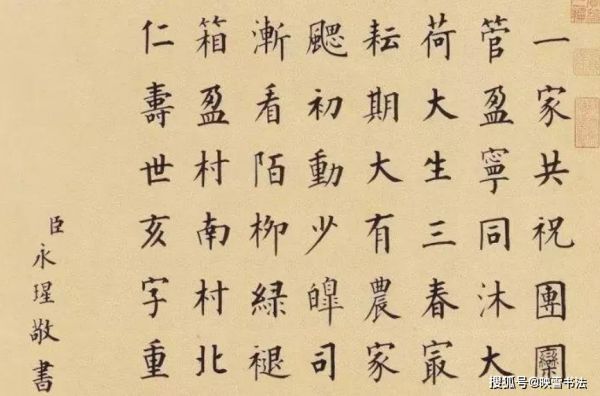 一家共祝團圞
管盈寧同沐大
荷大生三春㝡
耘期大有農家
颸初動少皞司
漸看陌栁緑褪
箱盈村南村北
仁壽世亥字重
臣永瑆敬書
搜狐号@映雪书法